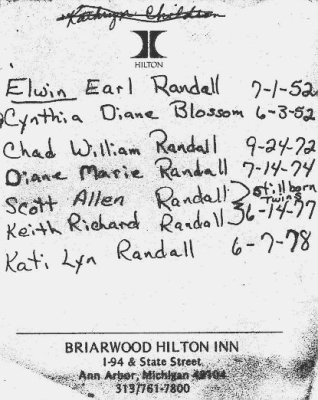 Kathryn Children
HILTON
Elwin Earl Randall 7-1-52
Cynthia Diane Blossom 6-3-52
Chad William Randall 9-24-72
Diane Marie Randall 7-14-74
Scott Allen Randall Stillborn
Twins
Keith Richard Randall 6-14-77
Kati Lyn Randall 6-7-78
BRIARWOOD HILTON INN
I-94 & State Street
Ann Arbor, Michigan 48104
313/761-7800